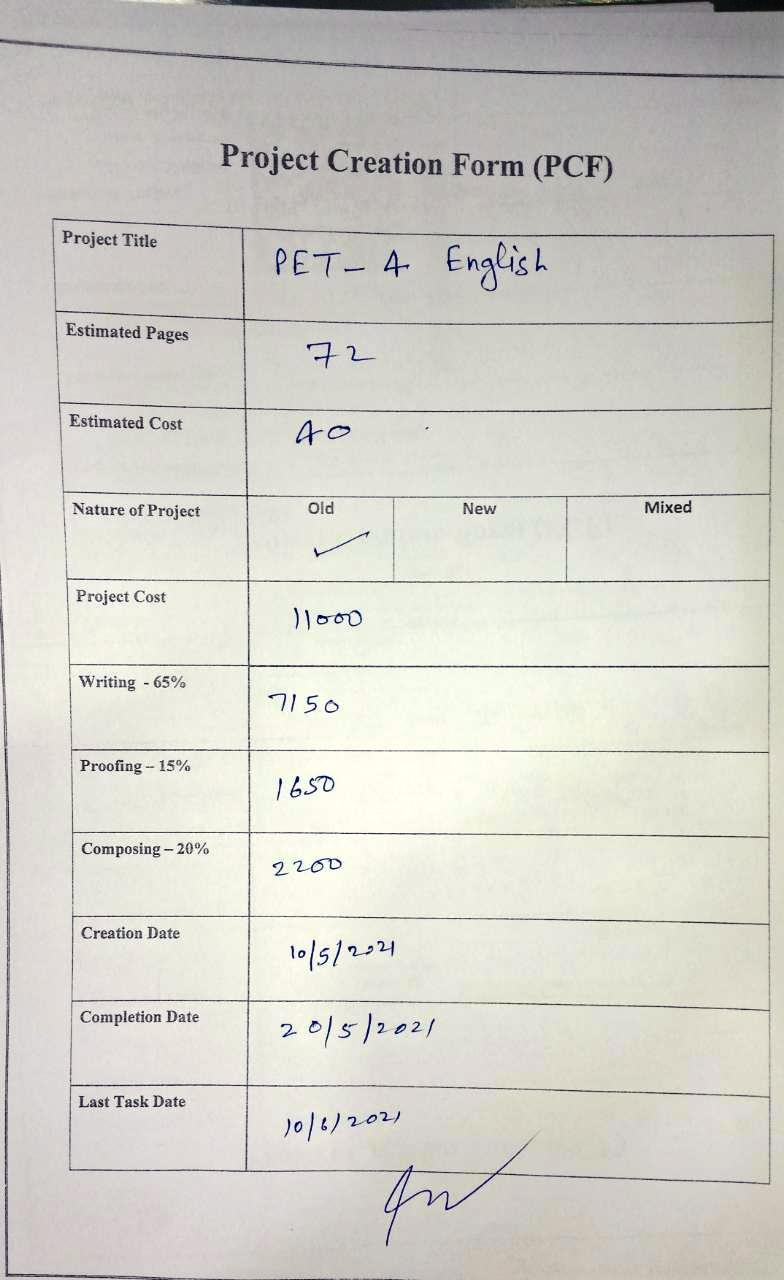 Project Creation Form (PCF)
Project Title PET - 4 English
Estimated Pages 72
Estimated Cost 40
Nature of Project Old New Mixed
✓
Project Cost 11000
Writing - 65% 7150
Proofing – 15% 1650
Composing – 20% 2200
Creation Date 10/5/2021
Completion Date 20/5/2021
Last Task Date 10/6/2021